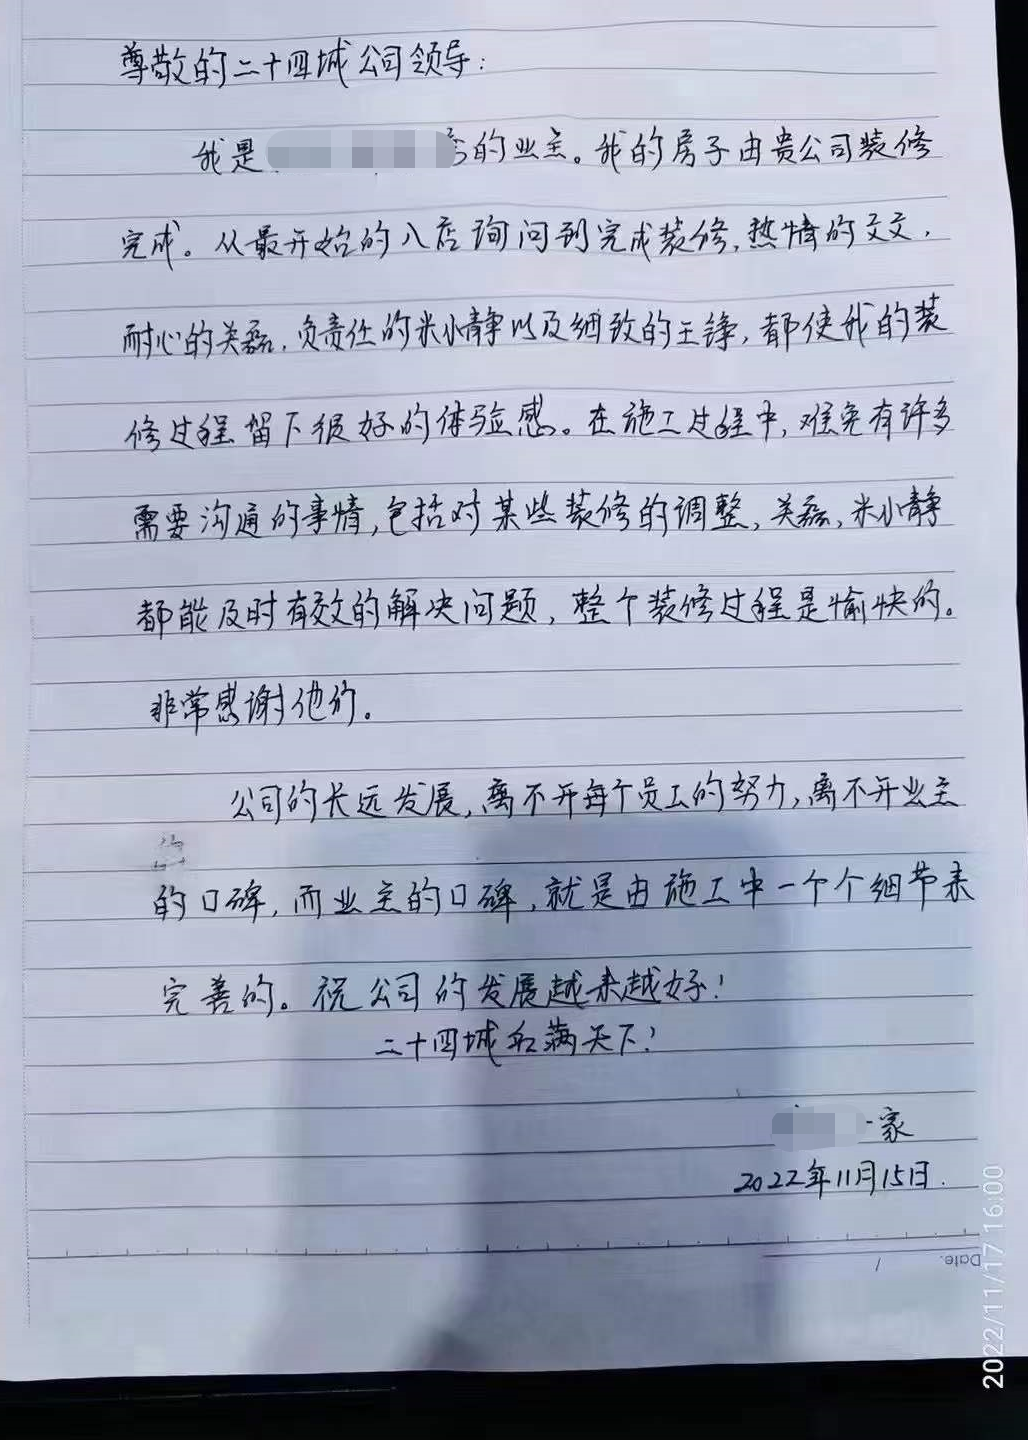 尊敬的二十四城公司领导：
我是号的业主。我的房子由贵公司装修
完成。从最开始的入店询问到完成装修，热情的文文，
耐心的关磊，负责任的米小静以及细致的王铮，都使我的装
修过程留下很好的体验感。在施工过程中，难免有许多
需要沟通的事情，包括对某些装修的调整，关磊，米小静
都能及时有效的解决问题，整个装修过程是愉快的。
非常感谢他们。
公司的长远发展，离不开每个员工的努力，离不开业主
的口碑，而业主的口碑，就是由施工中一个个细节来
完善的。祝公司的发展越来越好！
二十四城名满天下！
一家
2022年11月15日.
Date. /
2022/11/17 16:00